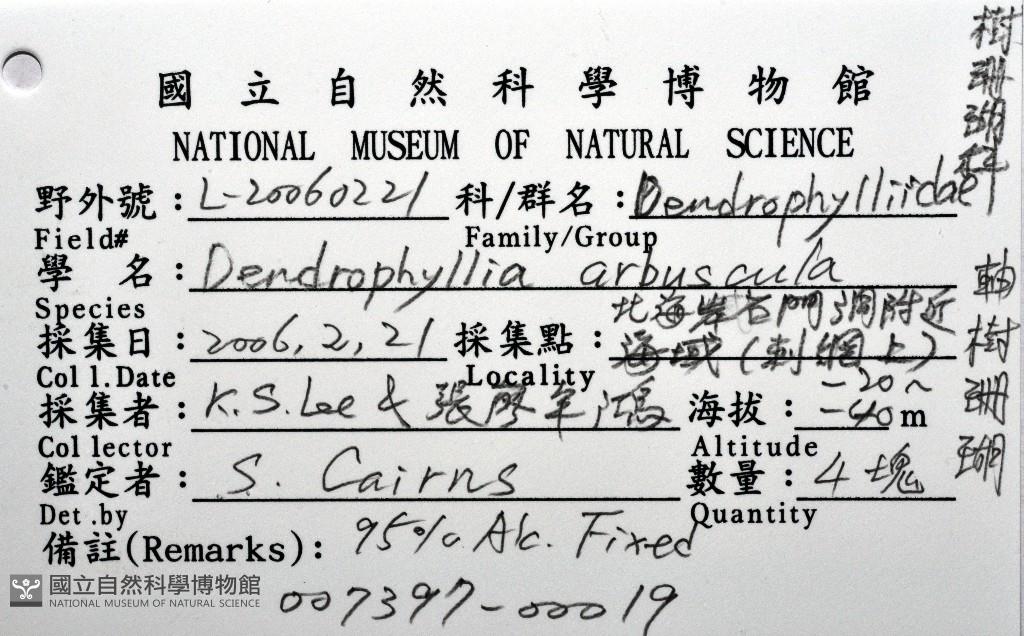 國立自然科學博物館
NATIONAL MUSEUM OF NATURAL SCIENCE
野外號: L-20060221 科/群名: Dendrophylliidae
Field# Family/Group
學 名: Dendrophyllia arbuscula
Species
北海岸石門洞附近
採集日: 2006, 2, 21 採集點: 海域(刺網上)
Coll.Date Locality
採集者: K.S.Lee & 張廖年鴻 海拔: -20~-40m
Collector Altitude
鑑定者: S. Cairns 數量: 4塊
Det.by Quantity
備註(Remarks): 95% Alc. Fixed
007397-00019
樹珊瑚科
軸樹珊瑚
國立自然科學博物館
NATIONAL MUSEUM OF NATURAL SCIENCE